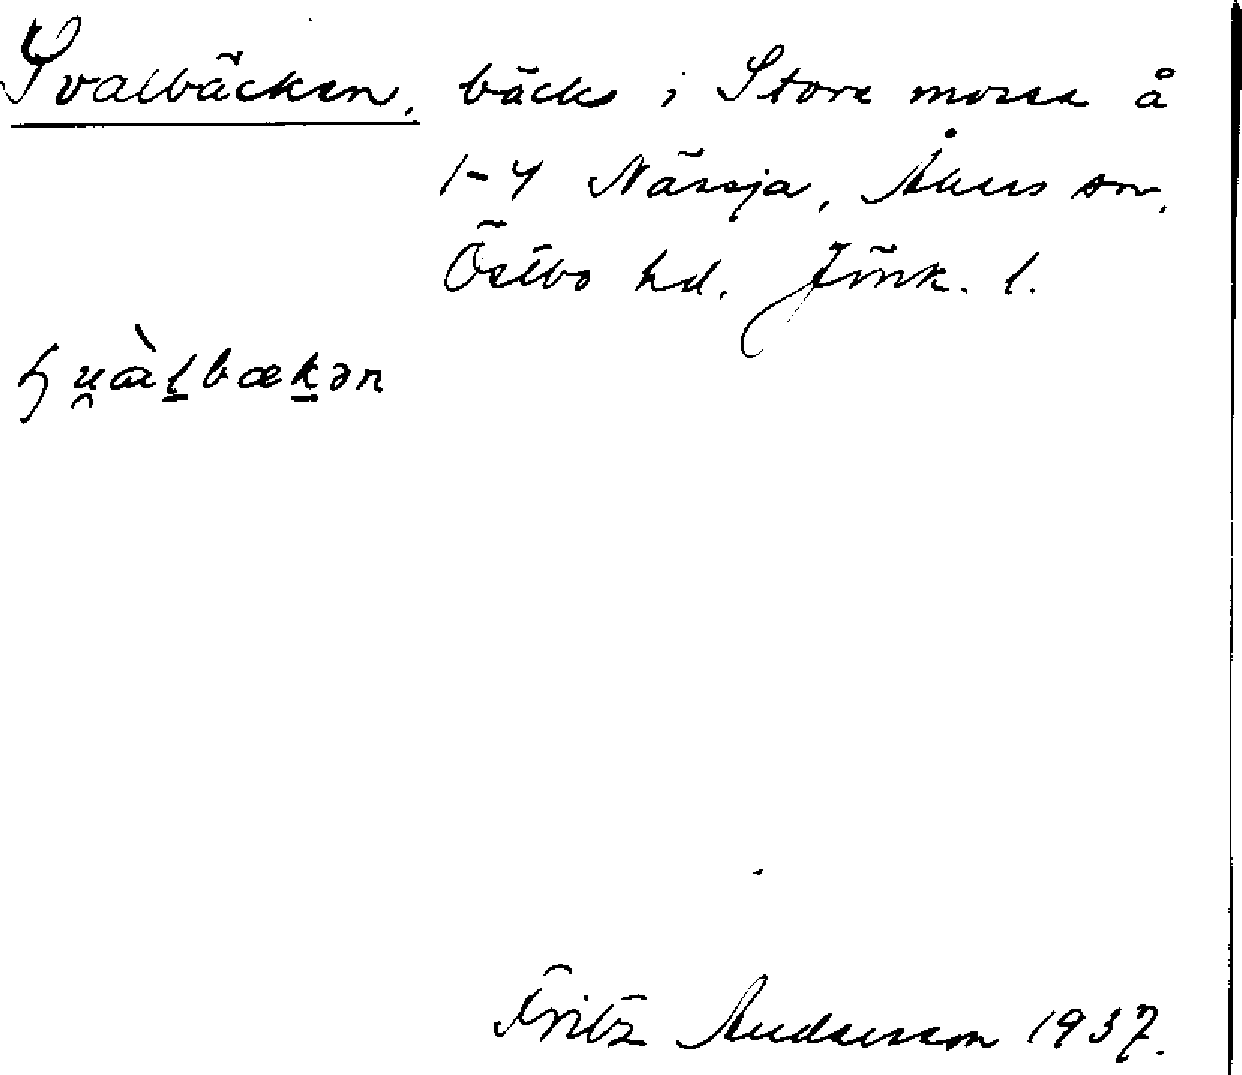 Svalbäcken, bäck i Store mosse å
1-4 Nässja, Åkers sn,
Östbo hd. Jönk. l.
Fritz Andersson 1937.